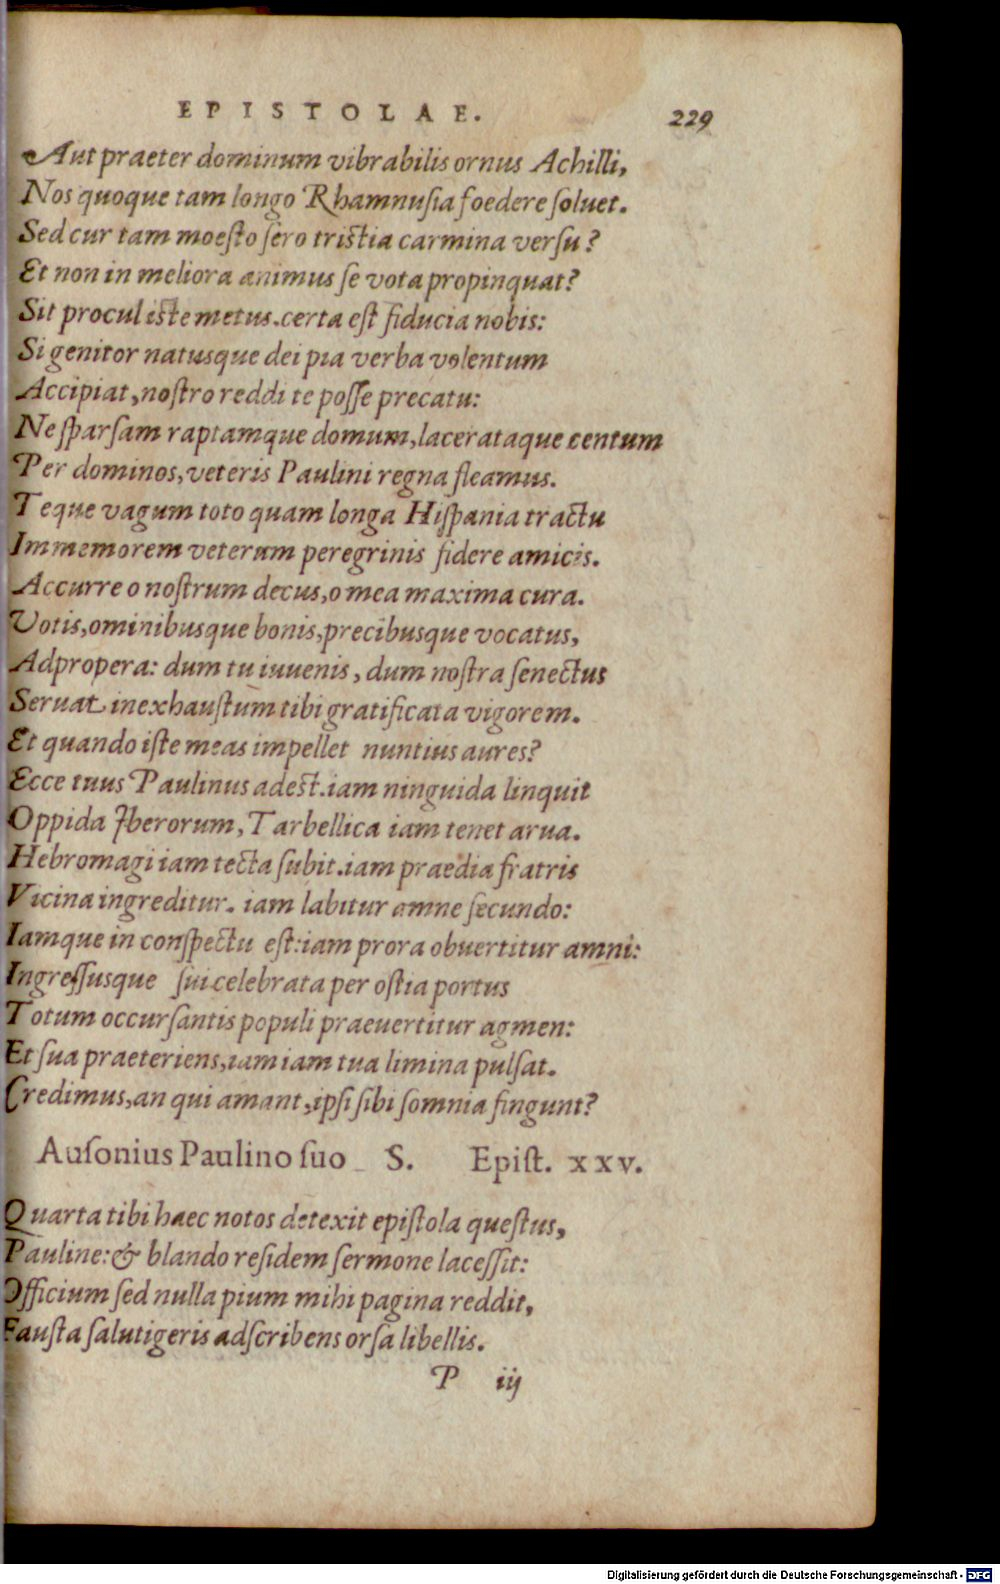 EPISTOLAE. 229
Aut praeter dominum vibrabilis ornus Achilli,
Nos quoque tam longo Rhamnusia foedere soluet.
Sed cur tam moesto sero tristia carmina versu?
Et non in meliora animus se vota propinquat?
Sit procul iste metus. certa est fiducia nobis:
Si genitor natusque dei pia verba volentum
Accipiat, nostro reddi te posse precatu:
Ne sparsam raptamque domum, lacerataque centum
Per dominos, veteris Paulini regna fleamus.
Teque vagum toto quam longa Hispania tractu
Immemorem veterum peregrinis fidere amicis.
Accurre o nostrum decus, o mea maxima cura.
Votis, ominibusque bonis, precibusque vocatus,
Adpropera: dum tu iuuenis, dum nostra senectus
Seruat inexhaustum tibi gratificata vigorem.
Et quando iste meas impellet nuntius aures?
Ecce tuus Paulinus adest. iam ninguida linquit
Oppida Iberorum, Tarbellica iam tenet arua.
Hebromagi iam tecta subit. iam praedia fratris
Vicina ingreditur. iam labitur amne secundo:
Iamque in conspectu est: iam prora obuertitur amni:
Ingressusque sui celebrata per ostia portus
Totum occursantis populi praeuertitur agmen:
Et sua praeteriens, iam iam tua limina pulsat.
Credimus, an qui amant, ipsi sibi somnia fingunt?
Ausonius Paulino suo S. Epist. xxv.
Quarta tibi haec notos detexit epistola questus,
Pauline: & blando residem sermone lacessit:
Officium sed nulla pium mihi pagina reddit,
Fausta salutigeris adscribens orsa libellis.
P iij
Digitalisierung gefördert durch die Deutsche Forschungsgemeinschaft - DFG